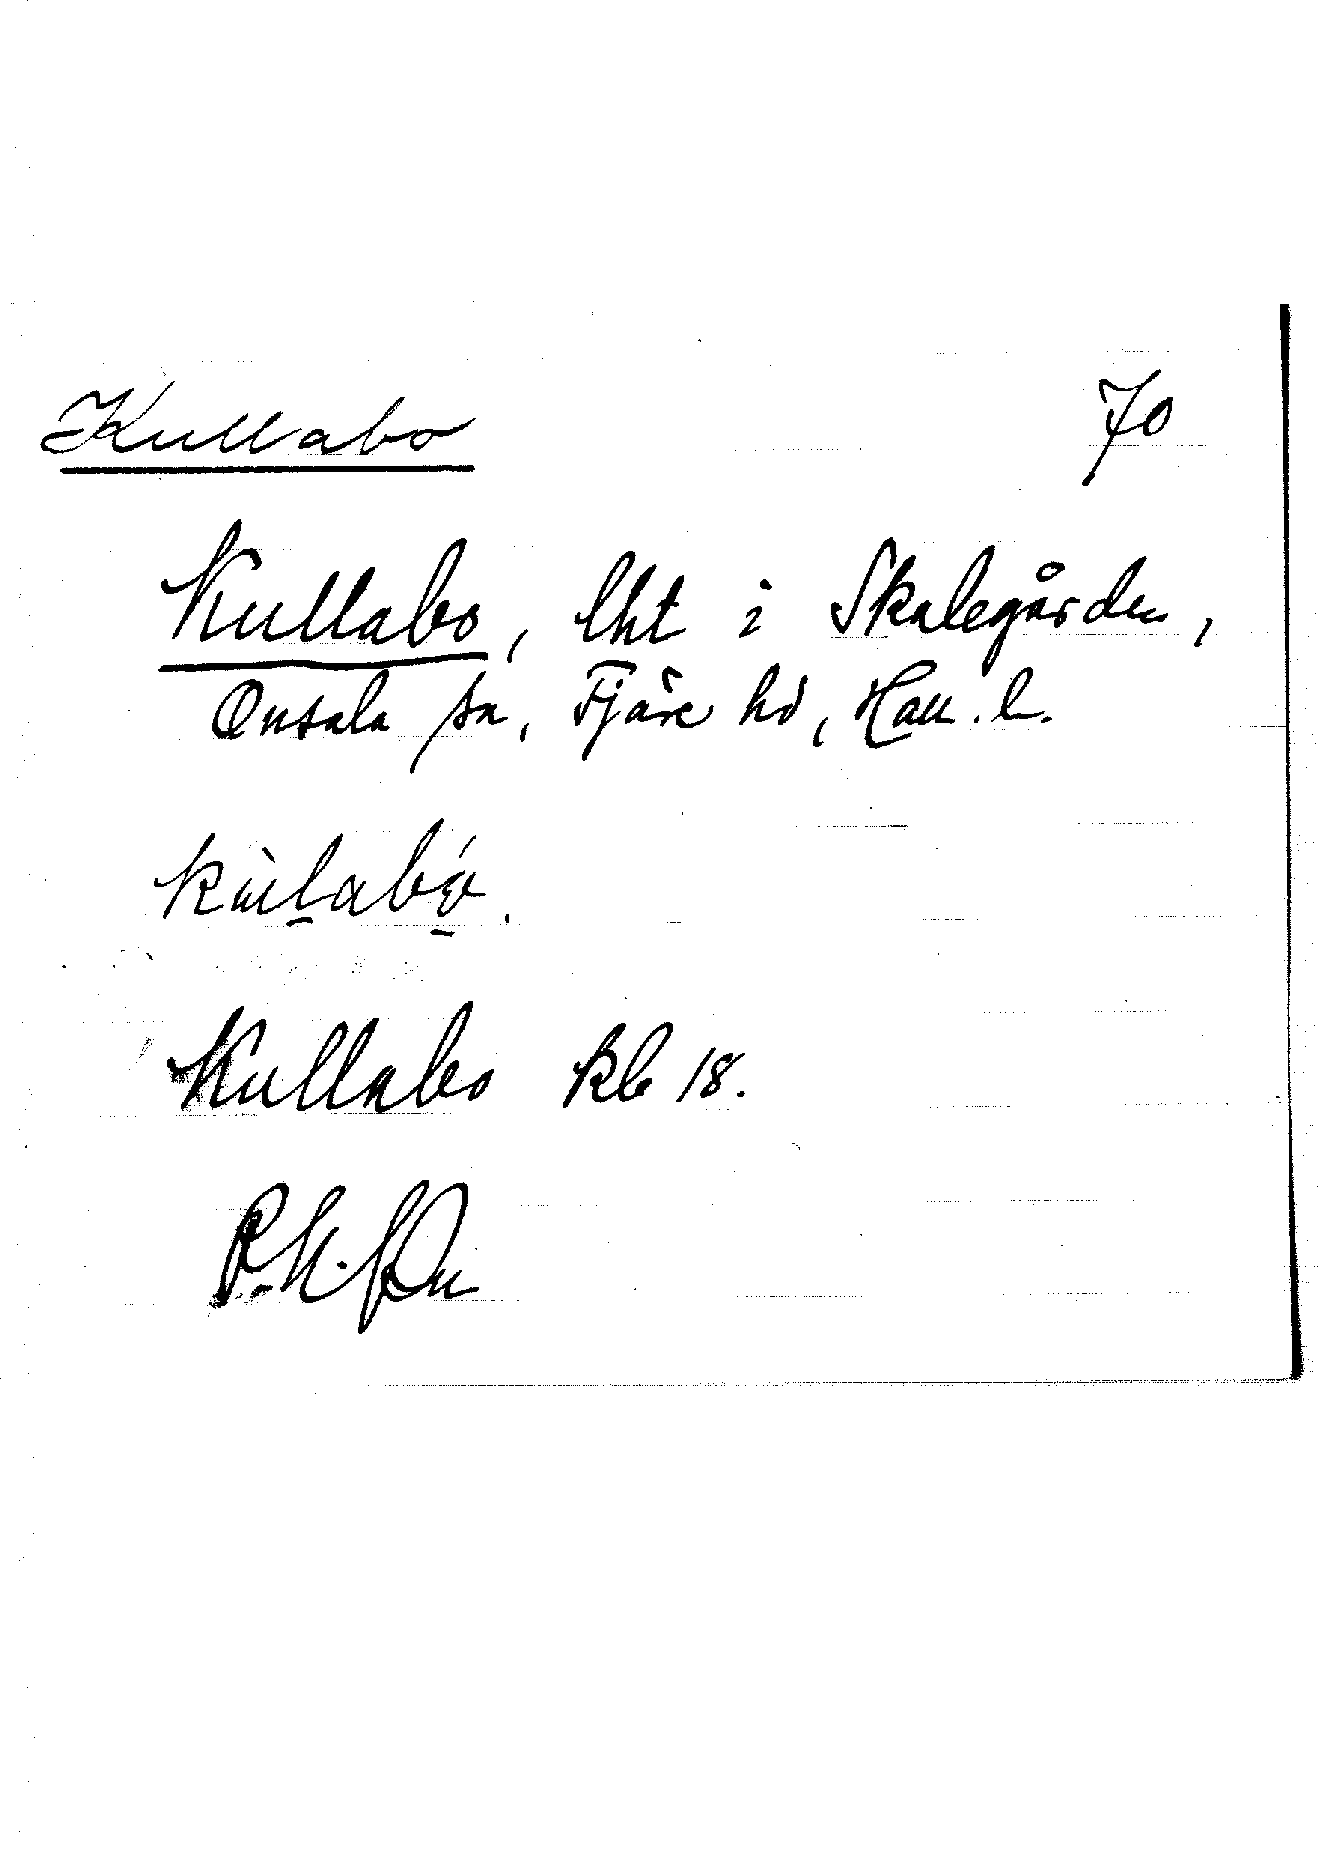 Kullabo 70
Kullabo, lht i Skalegården,
Onsala sn, Fjäre hd, Hall. l.
kùlabó.
Kullabo kb 18.